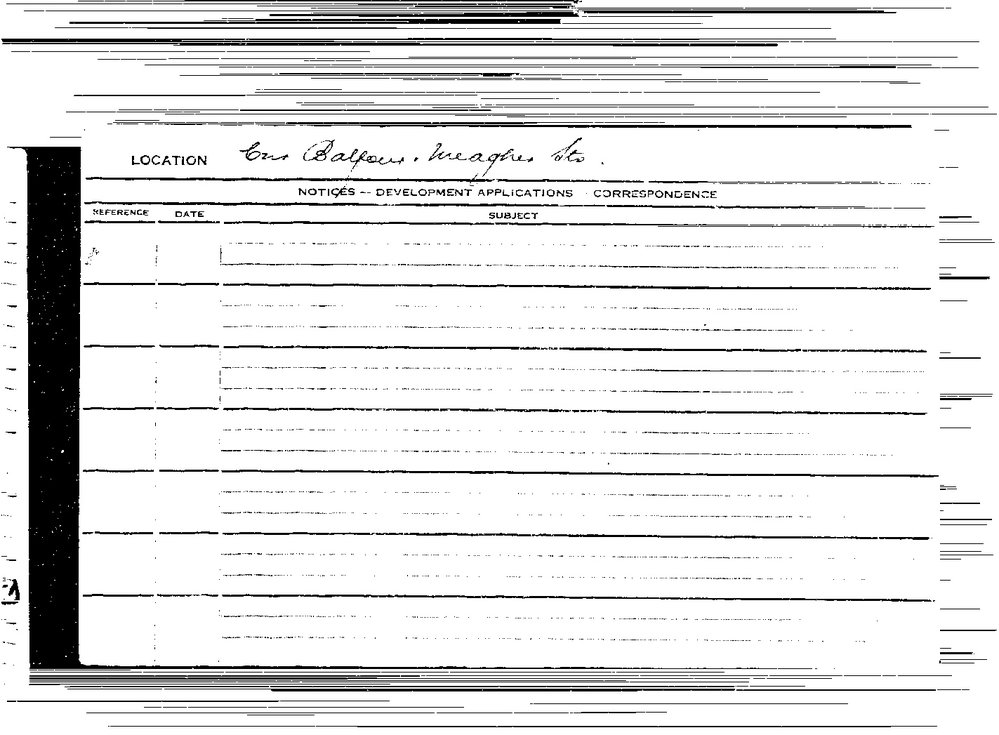 LOCATION Cnr Balfour & Meagher Sts.
NOTICES — DEVELOPMENT APPLICATIONS CORRESPONDENCE
REFERENCE DATE SUBJECT